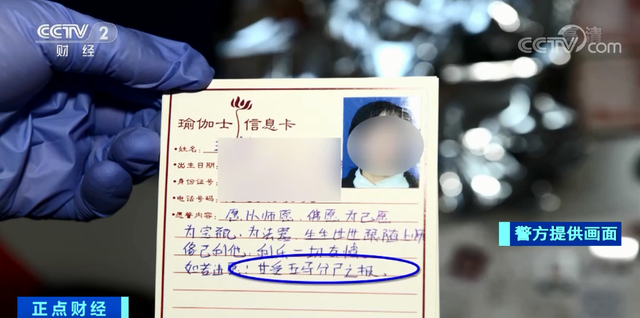 CCTV 2
财经
高清
CCTV.com
瑜伽士 信息卡
•姓名:
•出生日期:
•身份证号:
•电话号码:
•愿誓内容: 愿以师愿、佛愿为己愿
为宝瓶、为法器、生生世世跟随上师
修己利他、利乐一切有情。
如若违愿:甘受五马分尸之报。
警方提供画面
正点财经